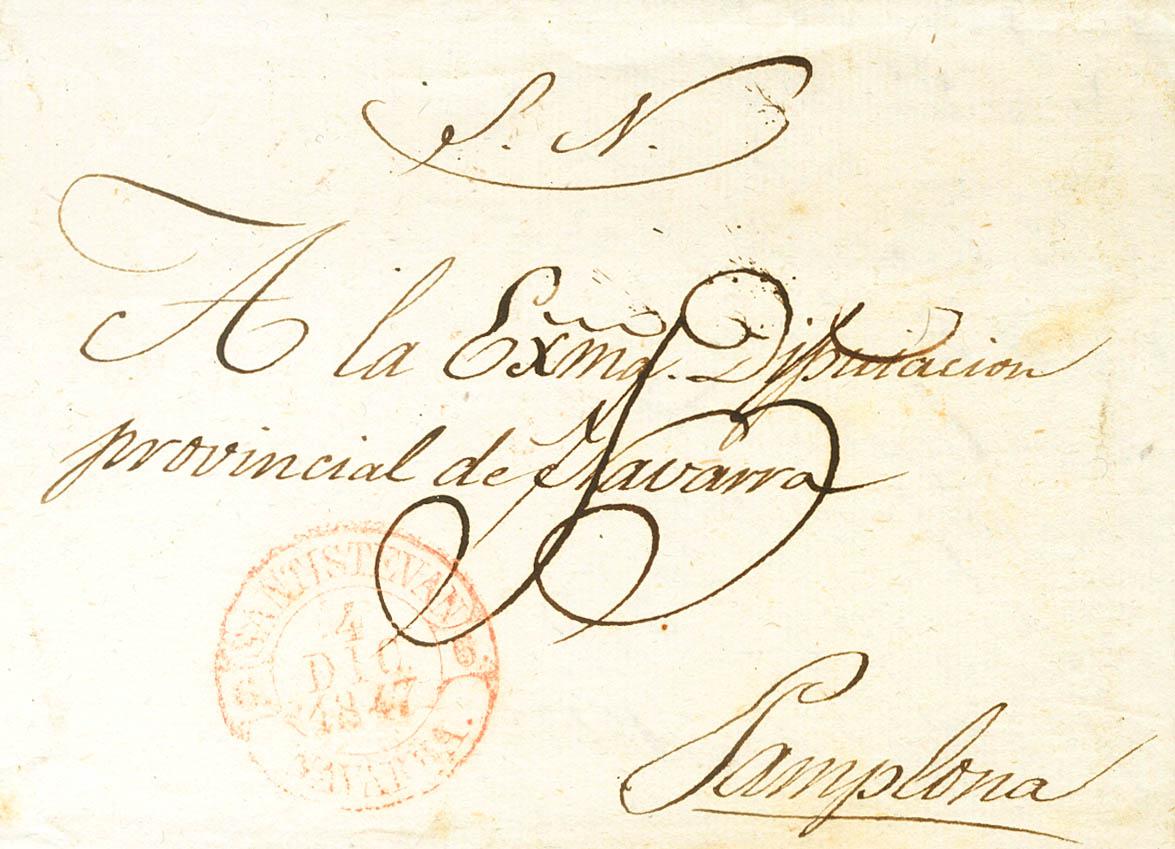 S. N.
A la Exma. Diputacion
provincial de Navarra
SANTISTEVAN
6
4
DIC
1847
NAVARRA.
Pamplona